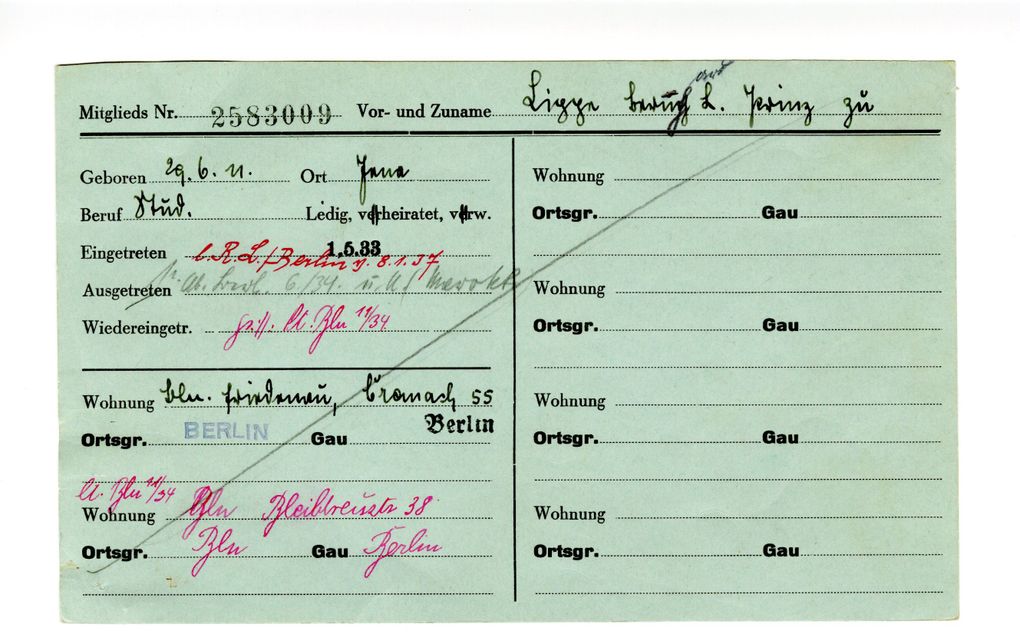 Mitglieds Nr. 2583009 Vor- und Zuname Lippe Bernh L. Prinz zu
ard
Geboren 29.6.11. Ort Jena
Beruf Stud. Ledig, verheiratet, verw.
Eingetreten 1.5.33
l. R.L./Berlin v. 8.1.37
Ausgetreten 6/34. u.
Wiedereingetr. lt. Bln 11/34
Wohnung Bln. Friedenau, Cranach 55
Ortsgr. BERLIN Gau Berlin
lt. Bln 11/34
Wohnung Bln Bleibtreustr 38
Ortsgr. Bln Gau Berlin
Wohnung
Ortsgr. Gau
Wohnung
Ortsgr. Gau
Wohnung
Ortsgr. Gau
Wohnung
Ortsgr. Gau